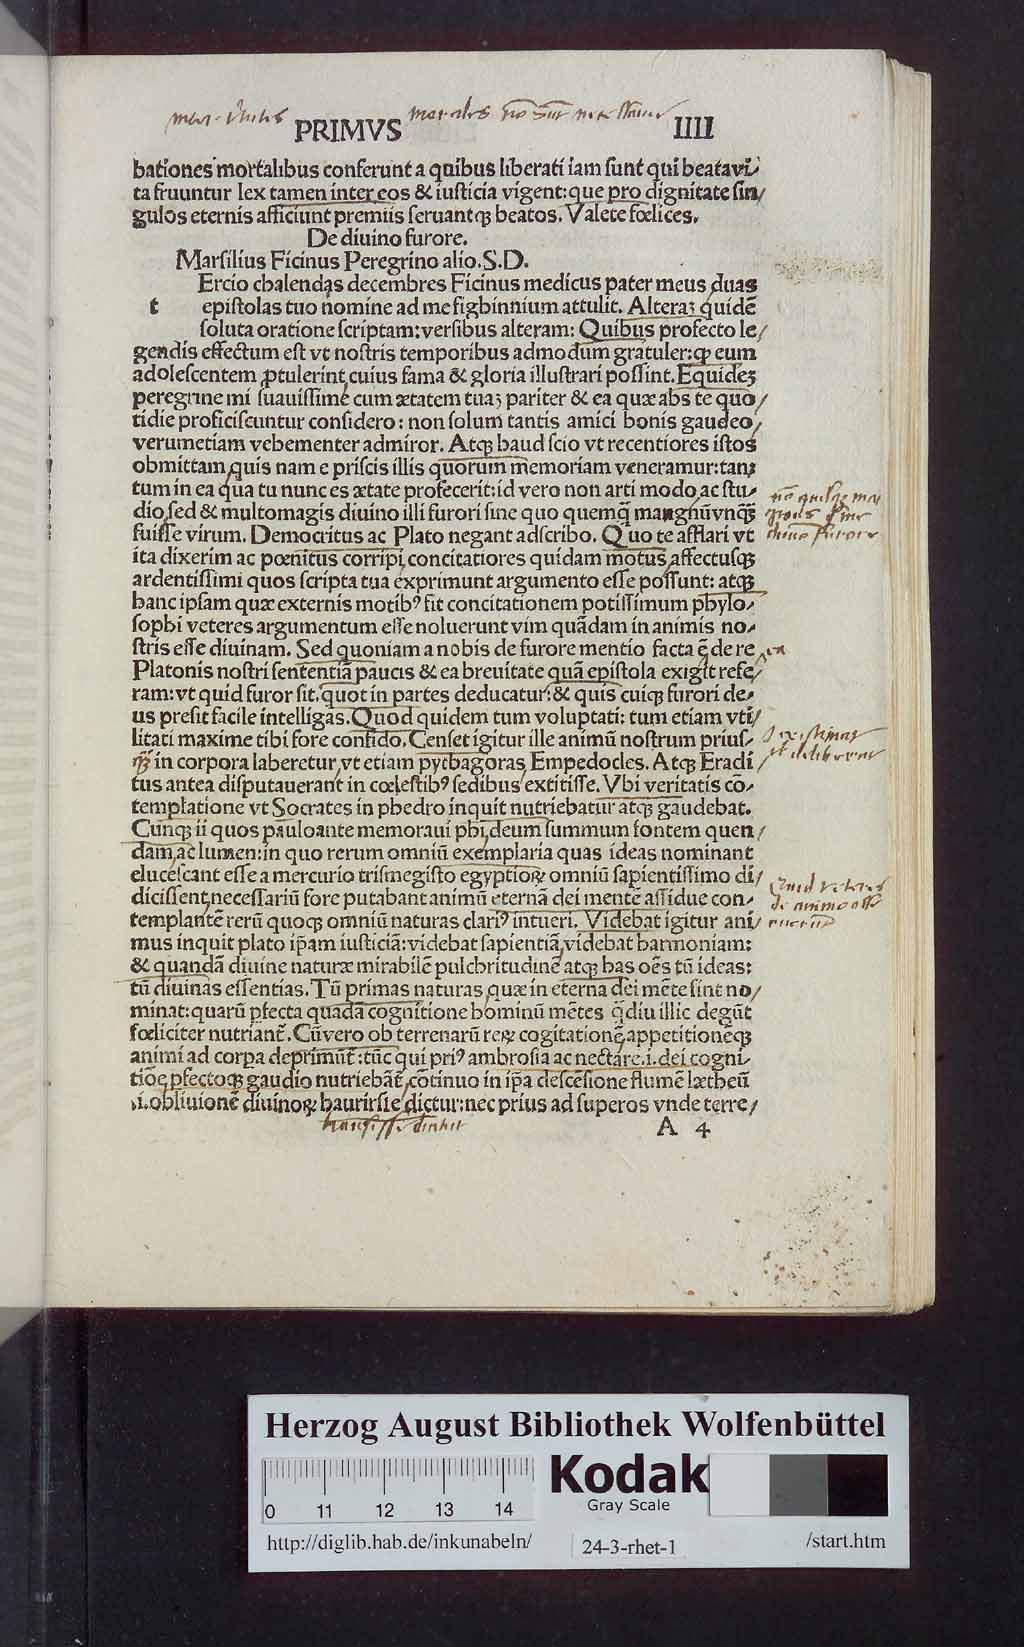 PRIMVS IIII
bationes mortalibus conferunt a quibus liberati iam sunt qui beata vi/
ta fruuntur lex tamen inter eos & iusticia vigent: que pro dignitate sin/
gulos eternis afficiunt premiis seruantqꝫ beatos. Valete fœlices.
De diuino furore.
Marsilius Ficinus Peregrino alio. S. D.
t Ercio chalendas decembres Ficinus medicus pater meus duas
epistolas tuo nomine ad me fighinnium attulit. Alteraꝫ quidē
soluta oratione scriptam: versibus alteram: Quibus profecto le/
gendis effectum est vt nostris temporibus admodum gratuler: ꝙ eum
adolescentem ꝓtulerint cuius fama & gloria illustrari possint. Equideꝫ
peregrine mi suauissime cum ætatem tuaꝫ pariter & ea quæ abs te quo/
tidie proficiscuntur considero: non solum tantis amici bonis gaudeo/
verumetiam vehementer admiror. Atqꝫ haud scio vt recentiores istos
obmittam quis nam e priscis illis quorum memoriam veneramur: tan
tum in ea qua tu nunc es ætate profecerit: id vero non arti modo ac stu/
dio sed & multomagis diuino illi furori sine quo quemqꝫ mangnū vnqꝫ
fuisse virum. Democritus ac Plato negant adscribo. Quo te afflari vt
ita dixerim ac pœnitus corripi concitatiores quidam motus affectusqꝫ
ardentissimi quos scripta tua exprimunt argumento esse possunt: atqꝫ
hanc ipsam quæ externis motibꝰ fit concitationem potissimum phylo/
sophi veteres argumentum esse noluerunt vim quādam in animis no/
stris esse diuinam. Sed quoniam a nobis de furore mentio facta ē de re
Platonis nostri sententiā paucis & ea breuitate quā epistola exigit refe/
ram: vt quid furor sit. quot in partes deducatur: & quis cuiqꝫ furori de/
us presit facile intelligas. Quod quidem tum voluptati: tum etiam vti/
litati maxime tibi fore confido. Censet igitur ille animū nostrum prius/
qꝫ in corpora laberetur vt etiam pythagoras Empedocles. Atqꝫ Eracli
tus antea disputauerant in cœlestibꝰ sedibus extitisse. Vbi veritatis cō/
templatione vt Socrates in phedro inquit nutriebatur atqꝫ gaudebat.
Cunqꝫ ii quos pauloante memoraui phi deum summum fontem quen/
dam ac lumen: in quo rerum omniū exemplaria quas ideas nominant
elucescant esse a mercurio trismegisto egyptioꝝ omniū sapientissimo di/
dicissent necessariū fore putabant animū eternā dei mente assidue con/
templantē rerū quoqꝫ omniū naturas clariꝰ intueri. Videbat igitur ani/
mus inquit plato ip̄am iusticiā: videbat sapientiā videbat harmoniam:
& quandā diuine naturæ mirabilē pulchritudinē atqꝫ has oēs tū ideas:
tū diuinas essentias. Tū primas naturas quæ in eterna dei mēte sint no/
minat: quarū ꝑfecta quadā cognitione hominū mētes q̄diu illic degūt
fœliciter nutriant̄. Cū vero ob terrenarū reꝝ cogitationē appetitionēqꝫ
animi ad corpa deprimunt̄: tūc qui priꝰ ambrosia ac nectare .i. dei cogni
tiōe ꝑfectoqꝫ gaudio nutriebāt̄ cōtinuo in ip̄a descēsione flumē lætheū
.i. obliuionē diuinoꝝ haurirsie dictur: nec prius ad superos vnde terre/
A 4
Herzog August Bibliothek Wolfenbüttel
0 11 12 13 14
Kodak
Gray Scale
http://diglib.hab.de/inkunabeln/ 24-3-rhet-1 /start.htm